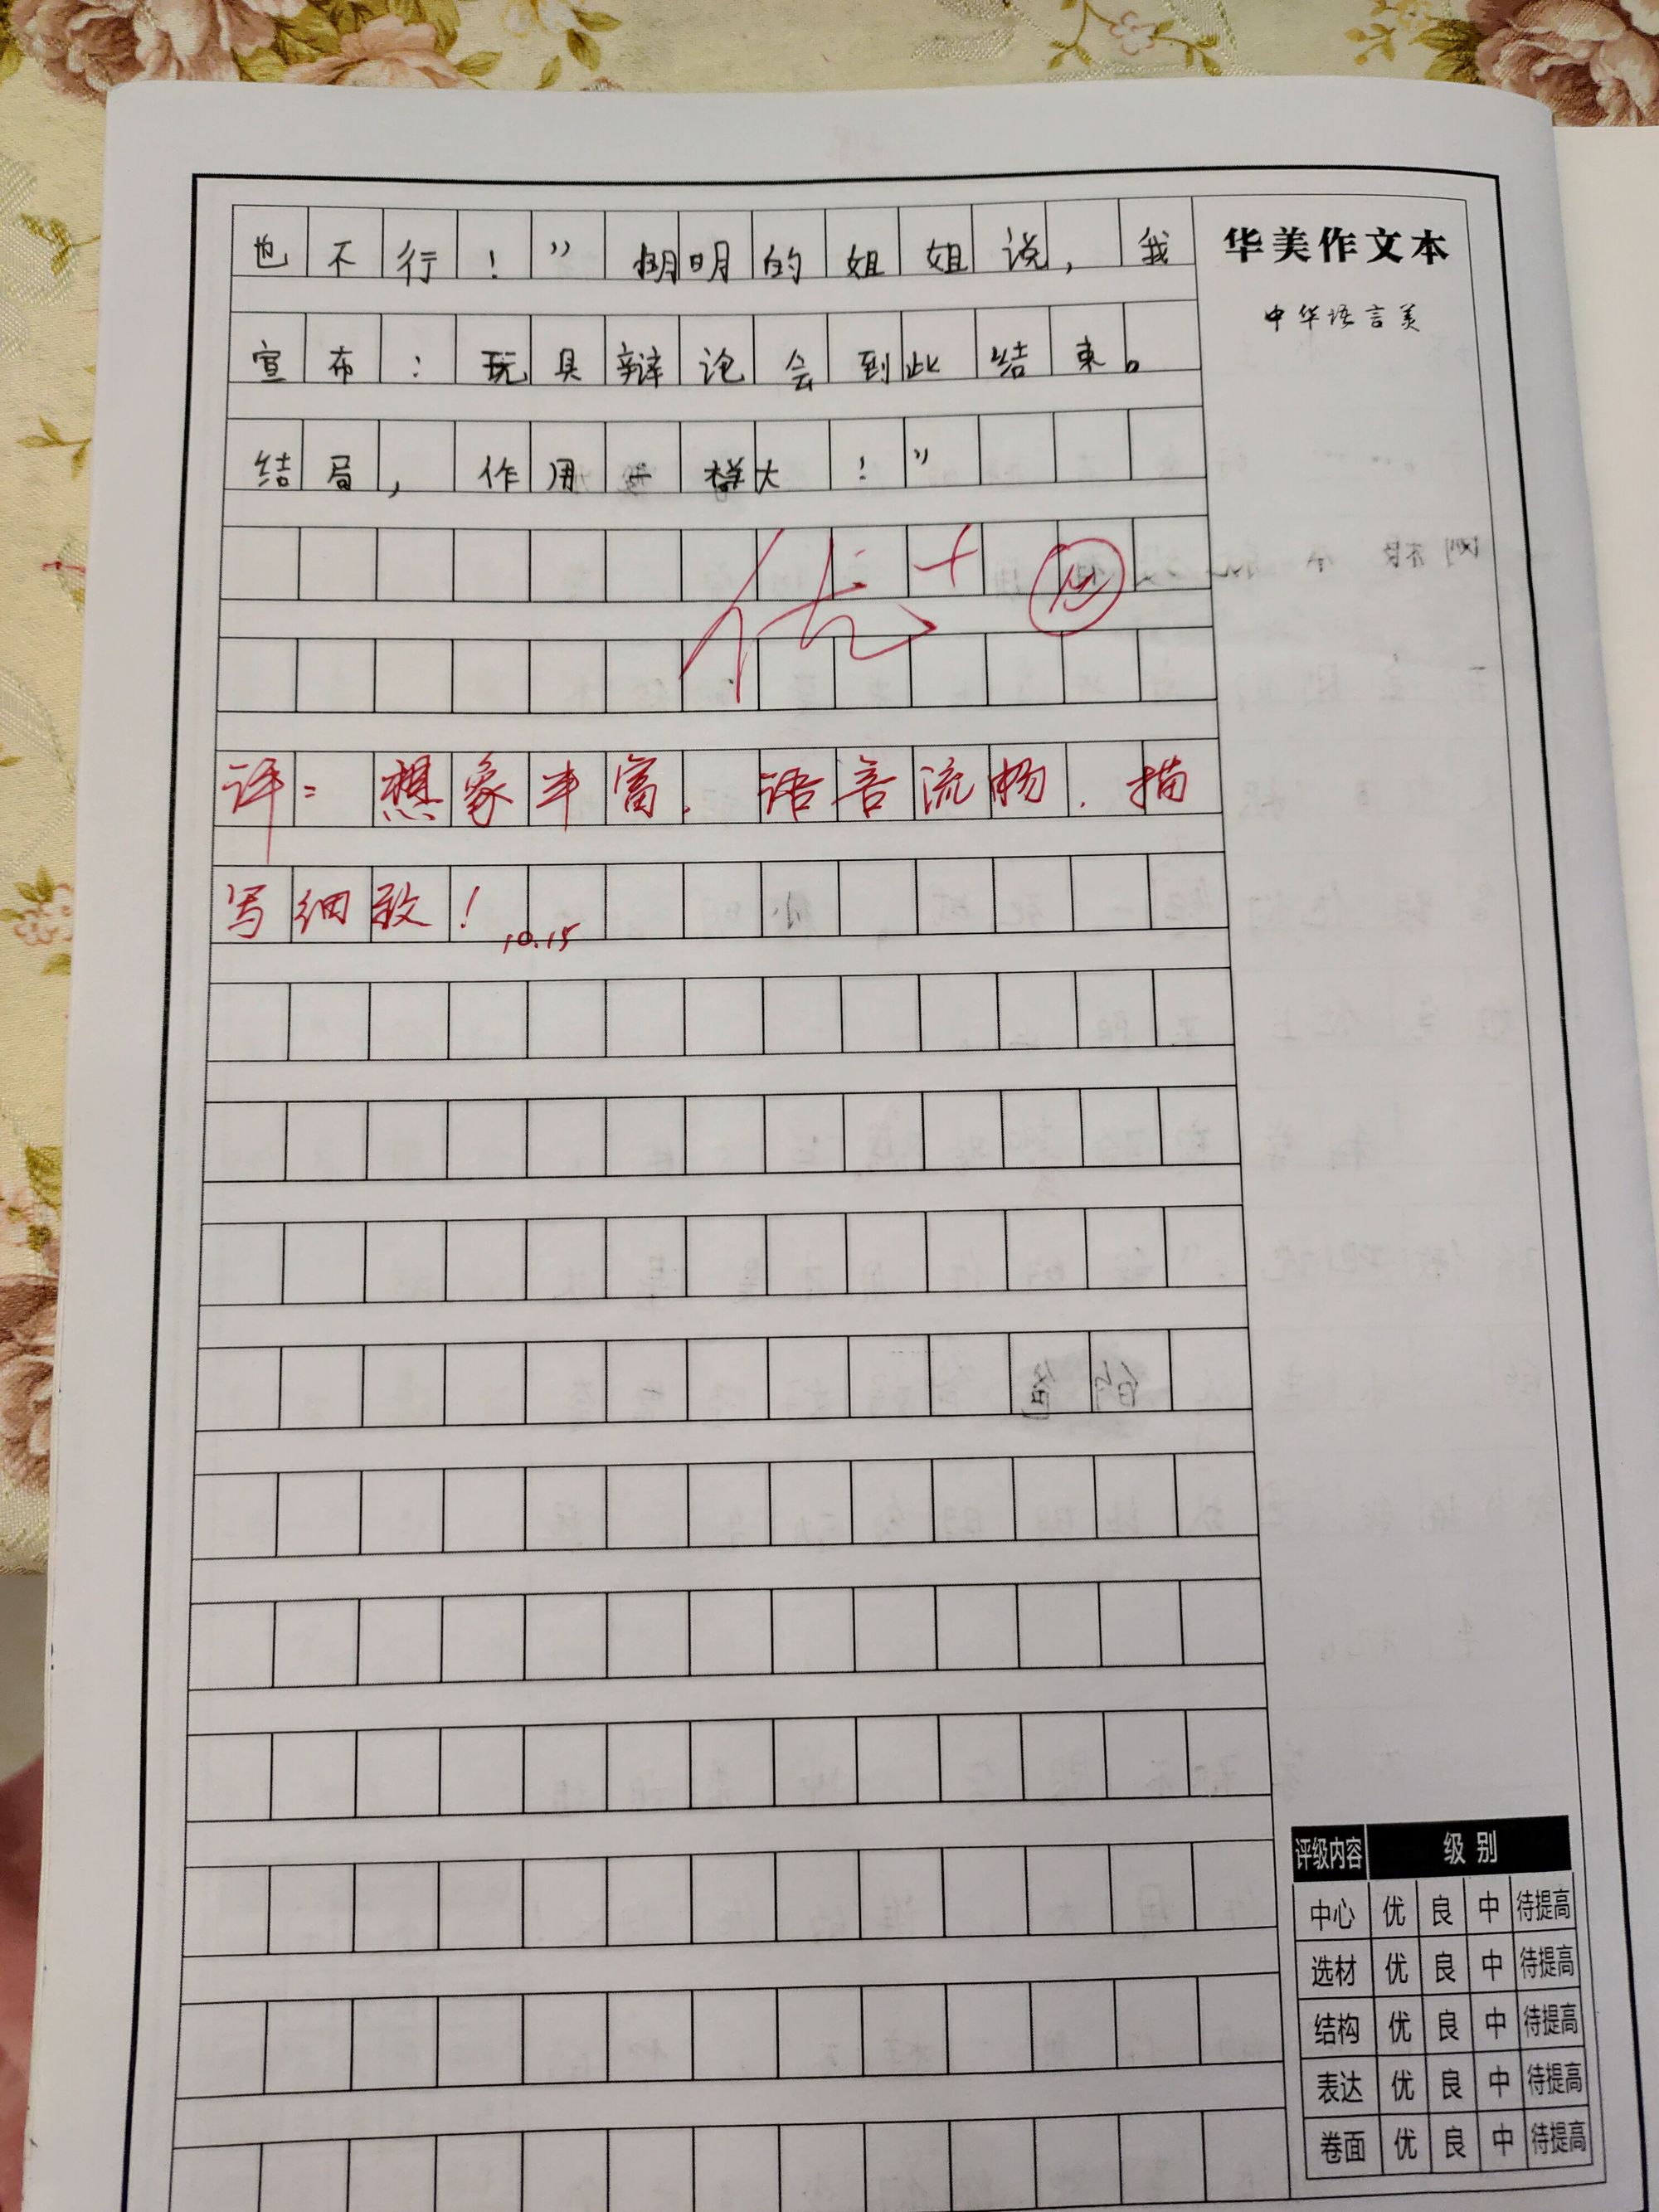 华美作文本
中华语言美
也不行！”明明的姐姐说，我
宣布：玩具辩论会到此结束。
结局，作用一样大！”
优+
评：想象丰富.语言流畅.描
写细致！
10.15
评级内容 级别
中心 优 良 中 待提高
选材 优 良 中 待提高
结构 优 良 中 待提高
表达 优 良 中 待提高
卷面 优 良 中 待提高